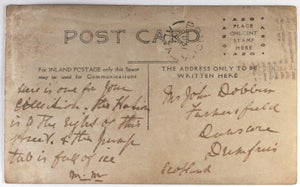 POST CARD
PLACE
ONE CENT
STAMP
HERE
FOR INLAND POSTAGE only this Space
may be used for Communications
THE ADDRESS ONLY TO BE
WRITTEN HERE
Here is one for your
collection. The
is to the right of this
street. & the pump
tub is full of ice
M.M
Mr John Dobbin
Dunscore
Dumfries
Scotland